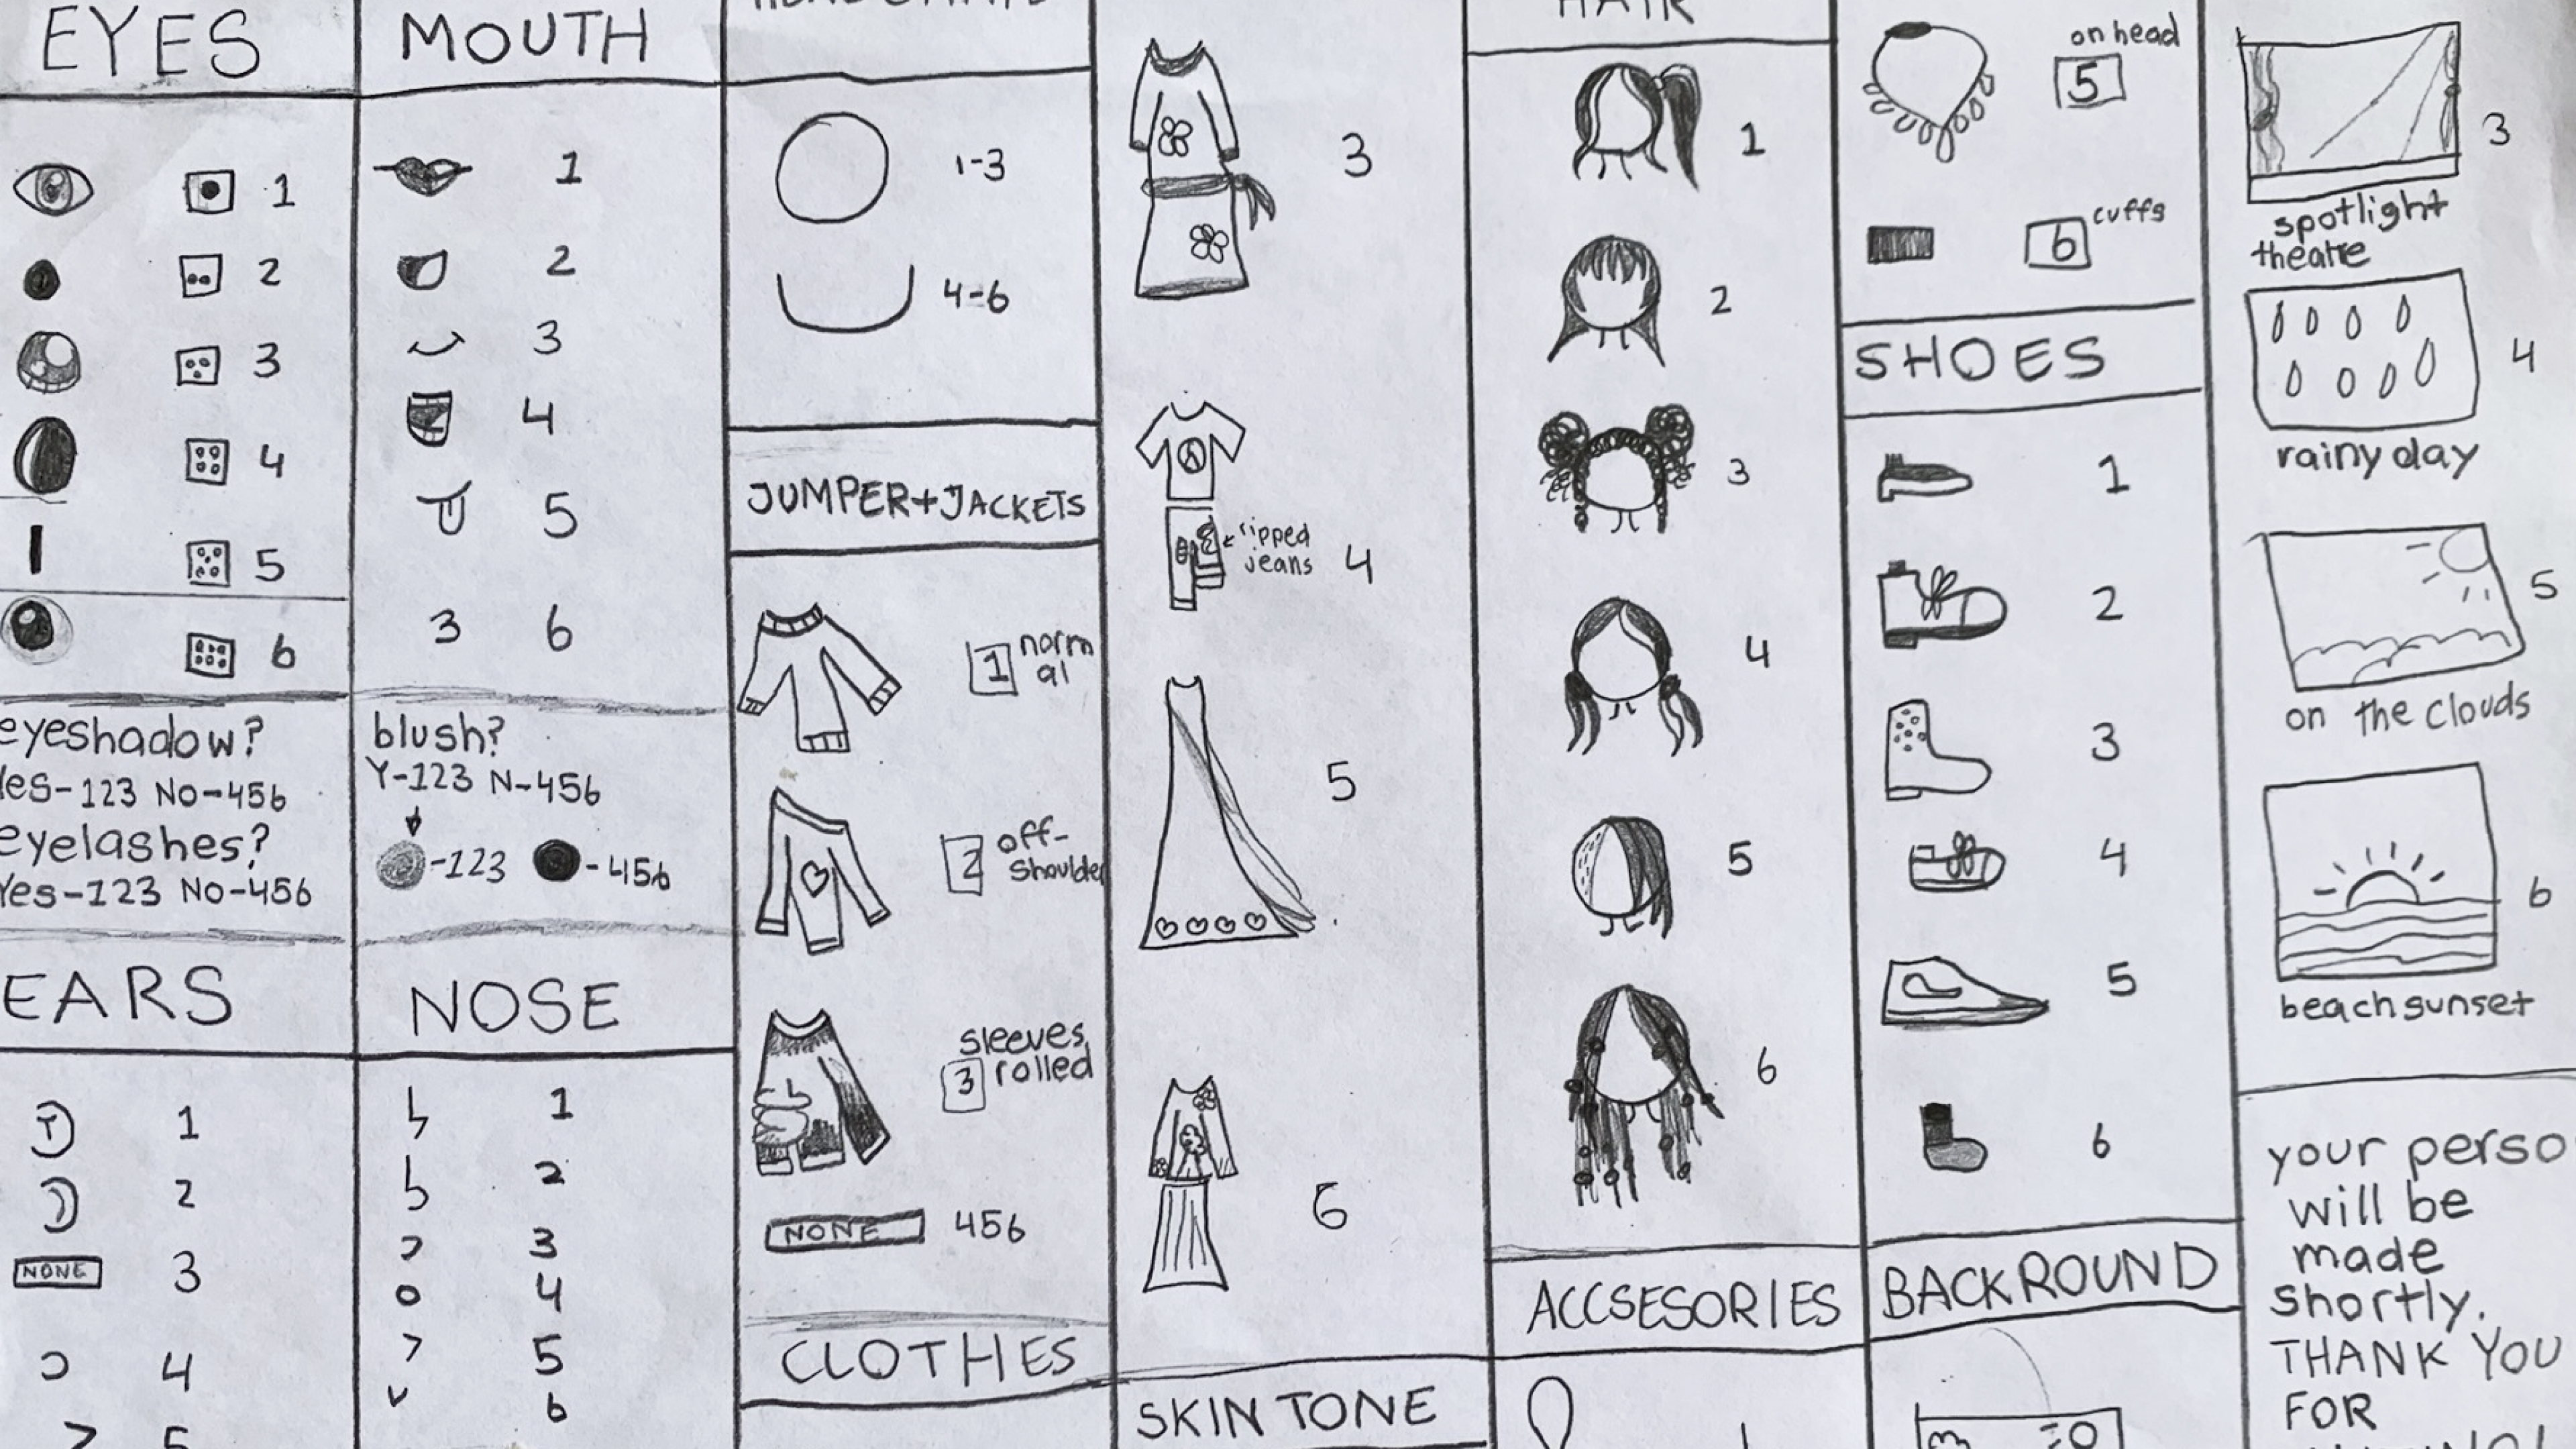 EYES
1
2
3
4
5
6
eyeshadow?
Yes-123 No-456
eyelashes?
Yes-123 No-456
EARS
1
2
NONE 3
4
5
MOUTH
1
2
3
4
5
3 6
blush?
Y-123 N-456
-123 -456
NOSE
1
2
3
4
5
6
1-3
4-6
JUMPER+JACKETS
1 norm
al
2 off-
shoulder
sleeves
3 rolled
NONE 456
CLOTHES
3
ripped
jeans 4
5
6
SKIN TONE
HAIR
1
2
3
4
5
6
ACCSESORIES
1
on head
5
cuffs
6
SHOES
1
2
3
4
5
6
BACKROUND
3
spotlight
theatre
4
rainy day
5
on the clouds
6
beach sunset
your perso
will be
made
shortly.
THANK YOU
FOR